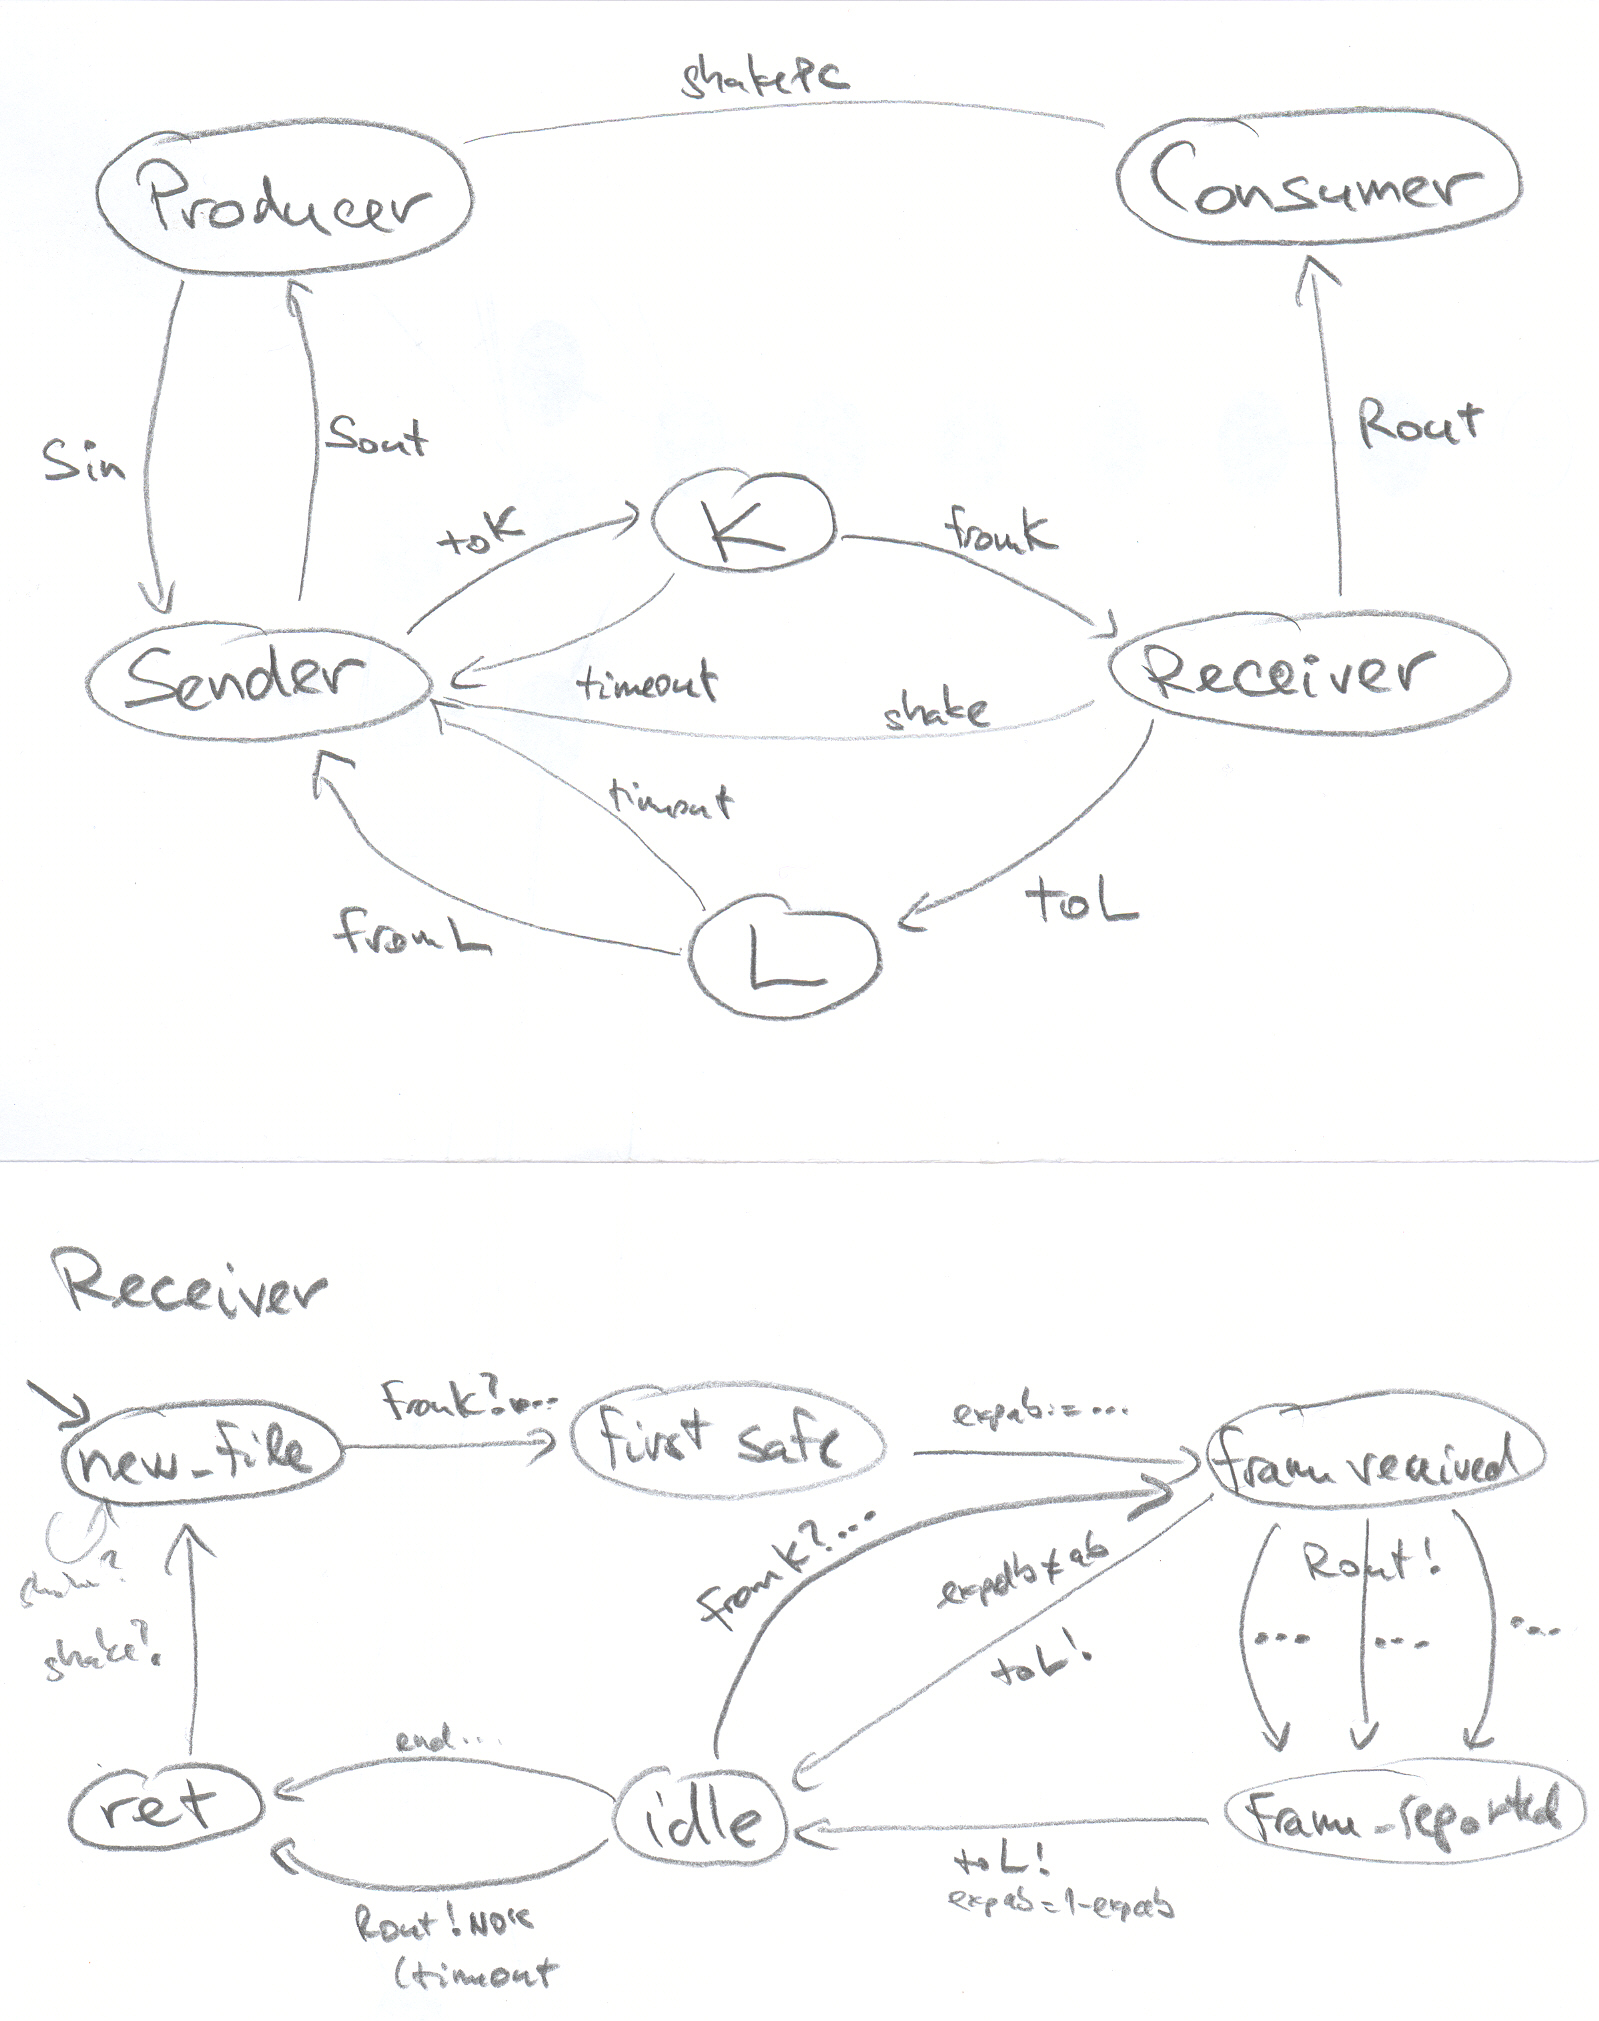 shakePC
Producer
Consumer
Sin
Sout
Rout
toK
K
fromK
Sender
timeout
shake
Receiver
timeout
fromL
L
toL
Receiver
new_file
fromK?...
first safe
expab:=...
frame received
shake?
shake?
fromK?...
expab≠ab
toL!
Rout!
... ... ...
ret
end...
idle
frame_reported
toL!
expab=1-expab
Rout!NOK
(timeout